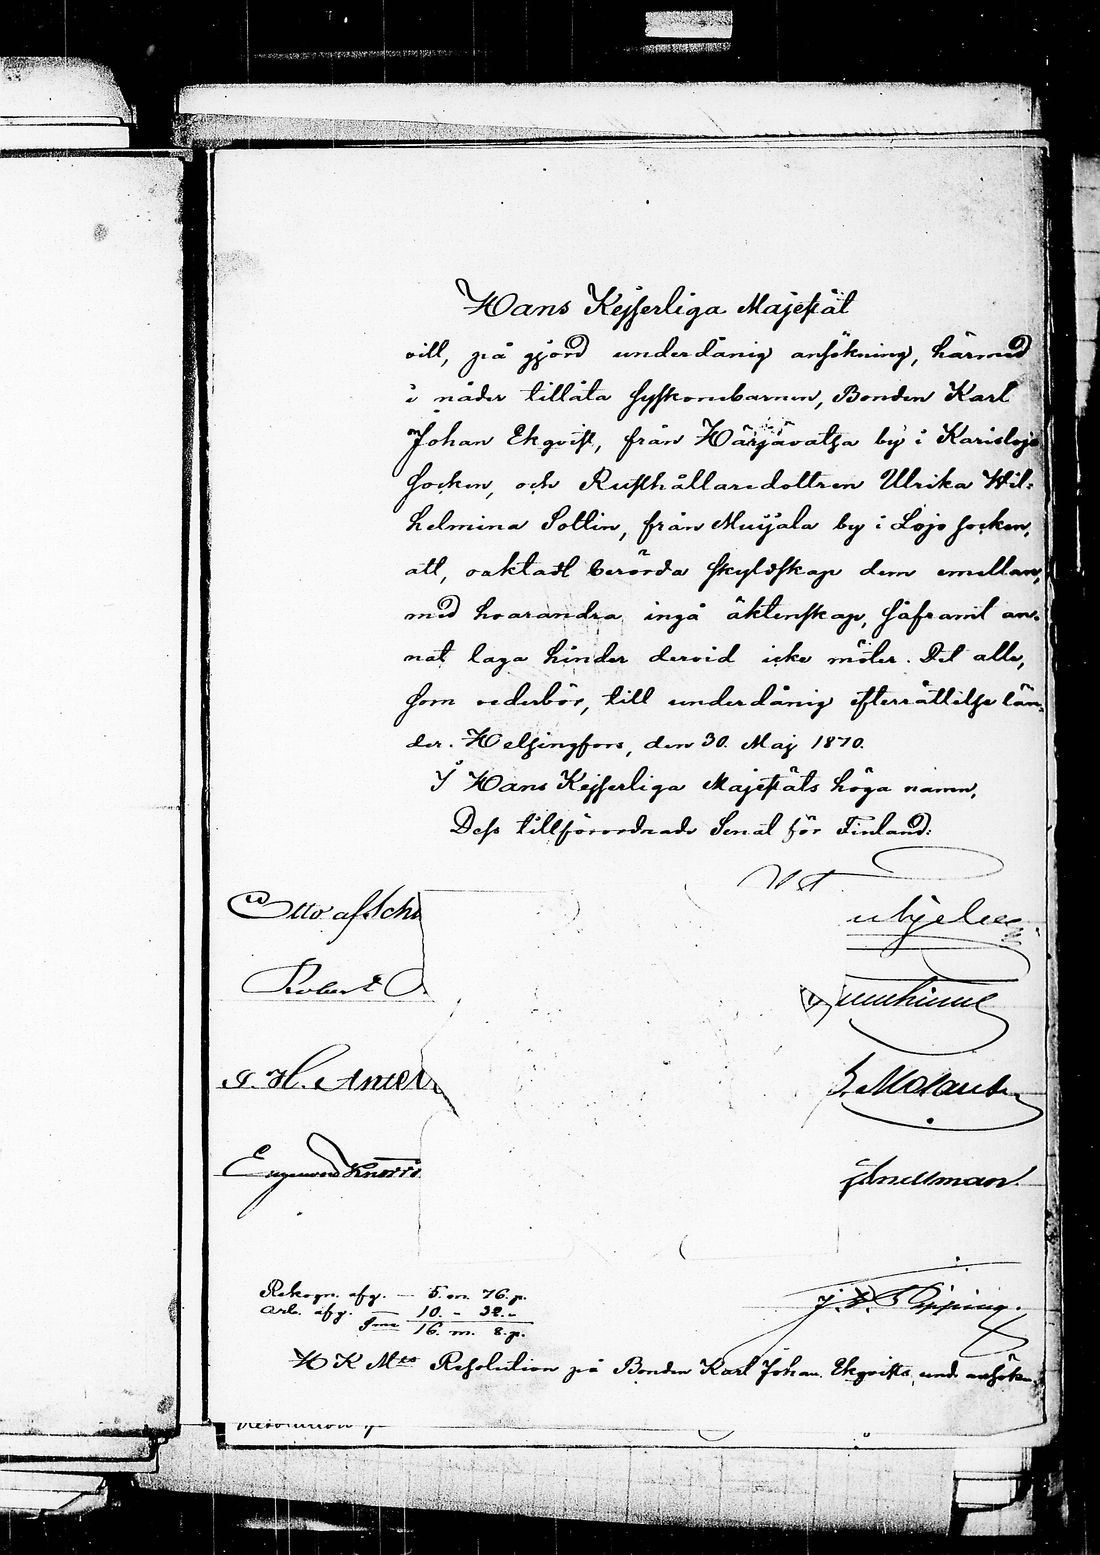 Hans Kejserliga Majestät
vill, på gjord underdånig ansökning, härmed
i nåder tillåta syskonebarnen, Bonden Karl
Johan Ekqvist, från Härjävatsa by i Karislojo
socken, och Rusthållaredottren Ulrika Wil-
helmina Sottin, från Muijala by i Lojo socken,
att, oaktadt berörda skyldskap dem emellan,
med hvarandra ingå äktenskap, såframt an-
nat laga hinder dervid icke möter. Det alle,
som vederbör, till underdånig efterrättelse län-
der. Helsingfors, den 30. Maj 1870.
I Hans Kejserliga Majestäts höga namn,
Dess tillförordnade Senat för Finland:
Otto af Sch
Robert
J. H. Antell
Knorri
S. Molander
Snellman
Rekogn. afg. — 5. m. 76. p.
Arb. afg. — 10. - 32. -
Sma 16. m. 8. p.
H K Mts Resolution på Bonden Karl Johan Ekqvists und. ansökn.
Resolution